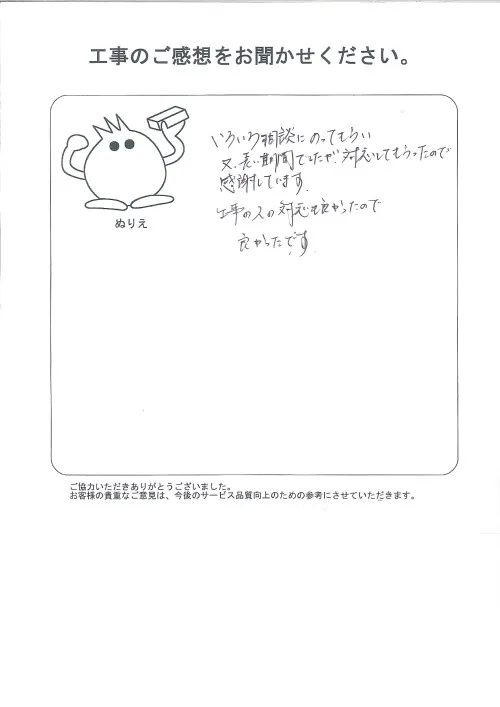 工事のご感想をお聞かせください。
いろいろ相談にのってもらい
又、長い期間でしたが、対応してもらったので
感謝しています。
工事の人の対応も良かったので
良かったです。
ぬりえ
ご協力いただきありがとうございました。
お客様の貴重なご意見は、今後のサービス品質向上のための参考にさせていただきます。